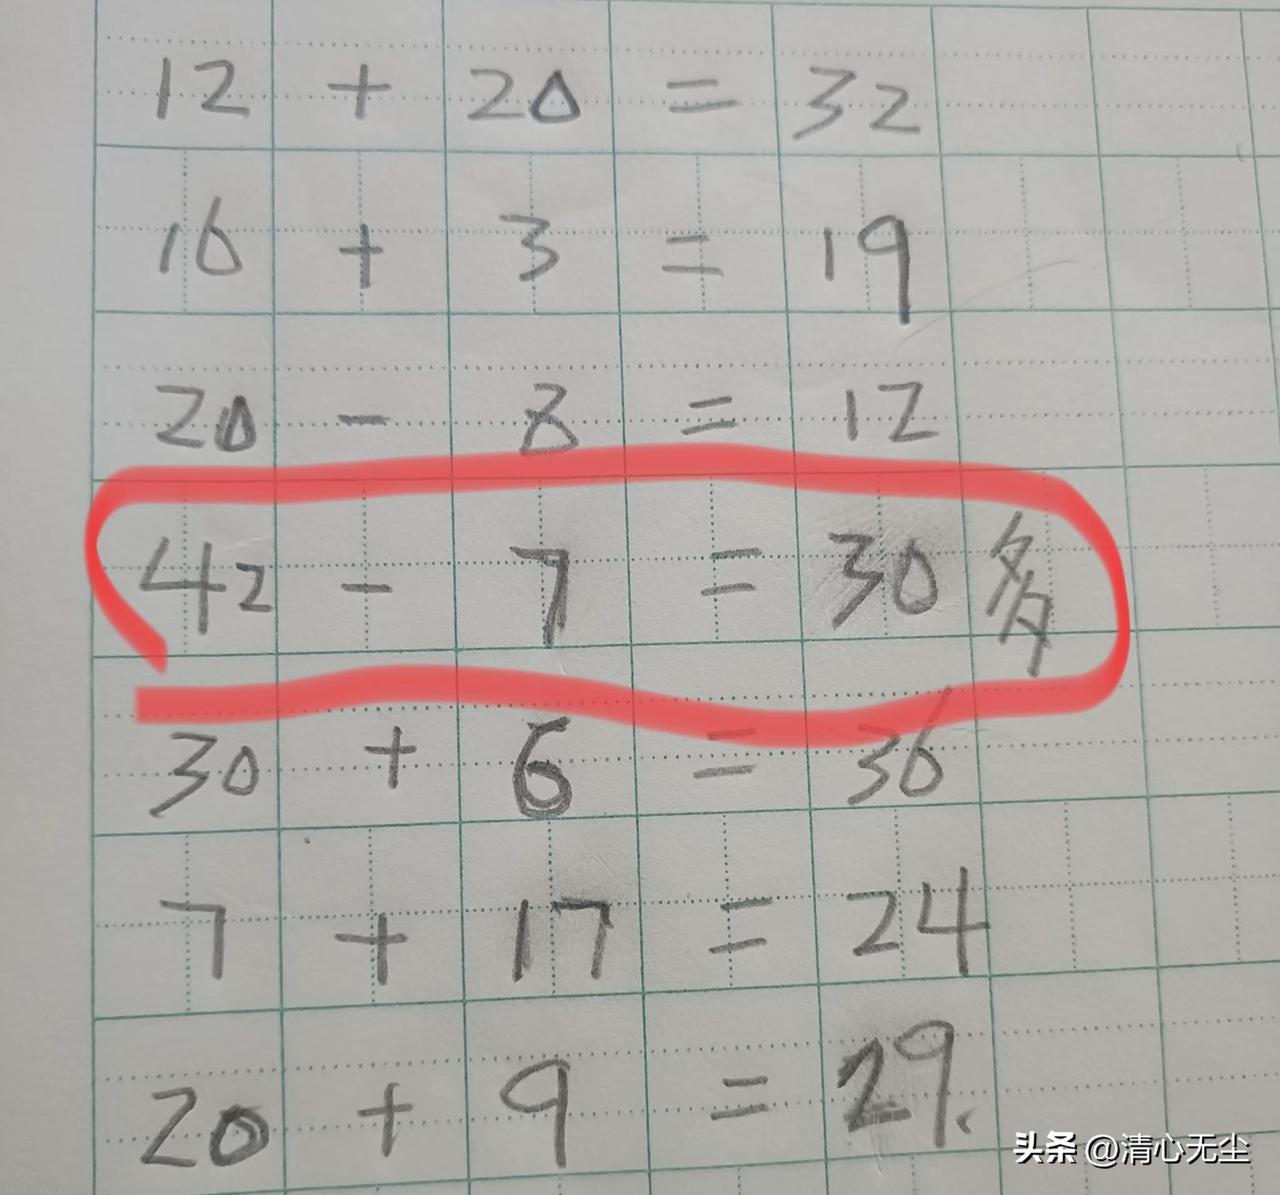 12 + 20 = 32
16 + 3 = 19
20 - 8 = 12
42 - 7 = 30多
30 + 6 = 36
7 + 17 = 24
20 + 9 = 29.
头条 @清心无尘